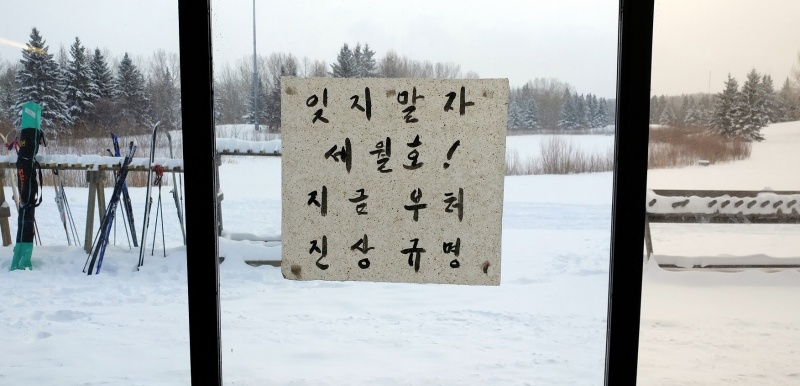 잊지말자
세월호!
지금부터
진상규명